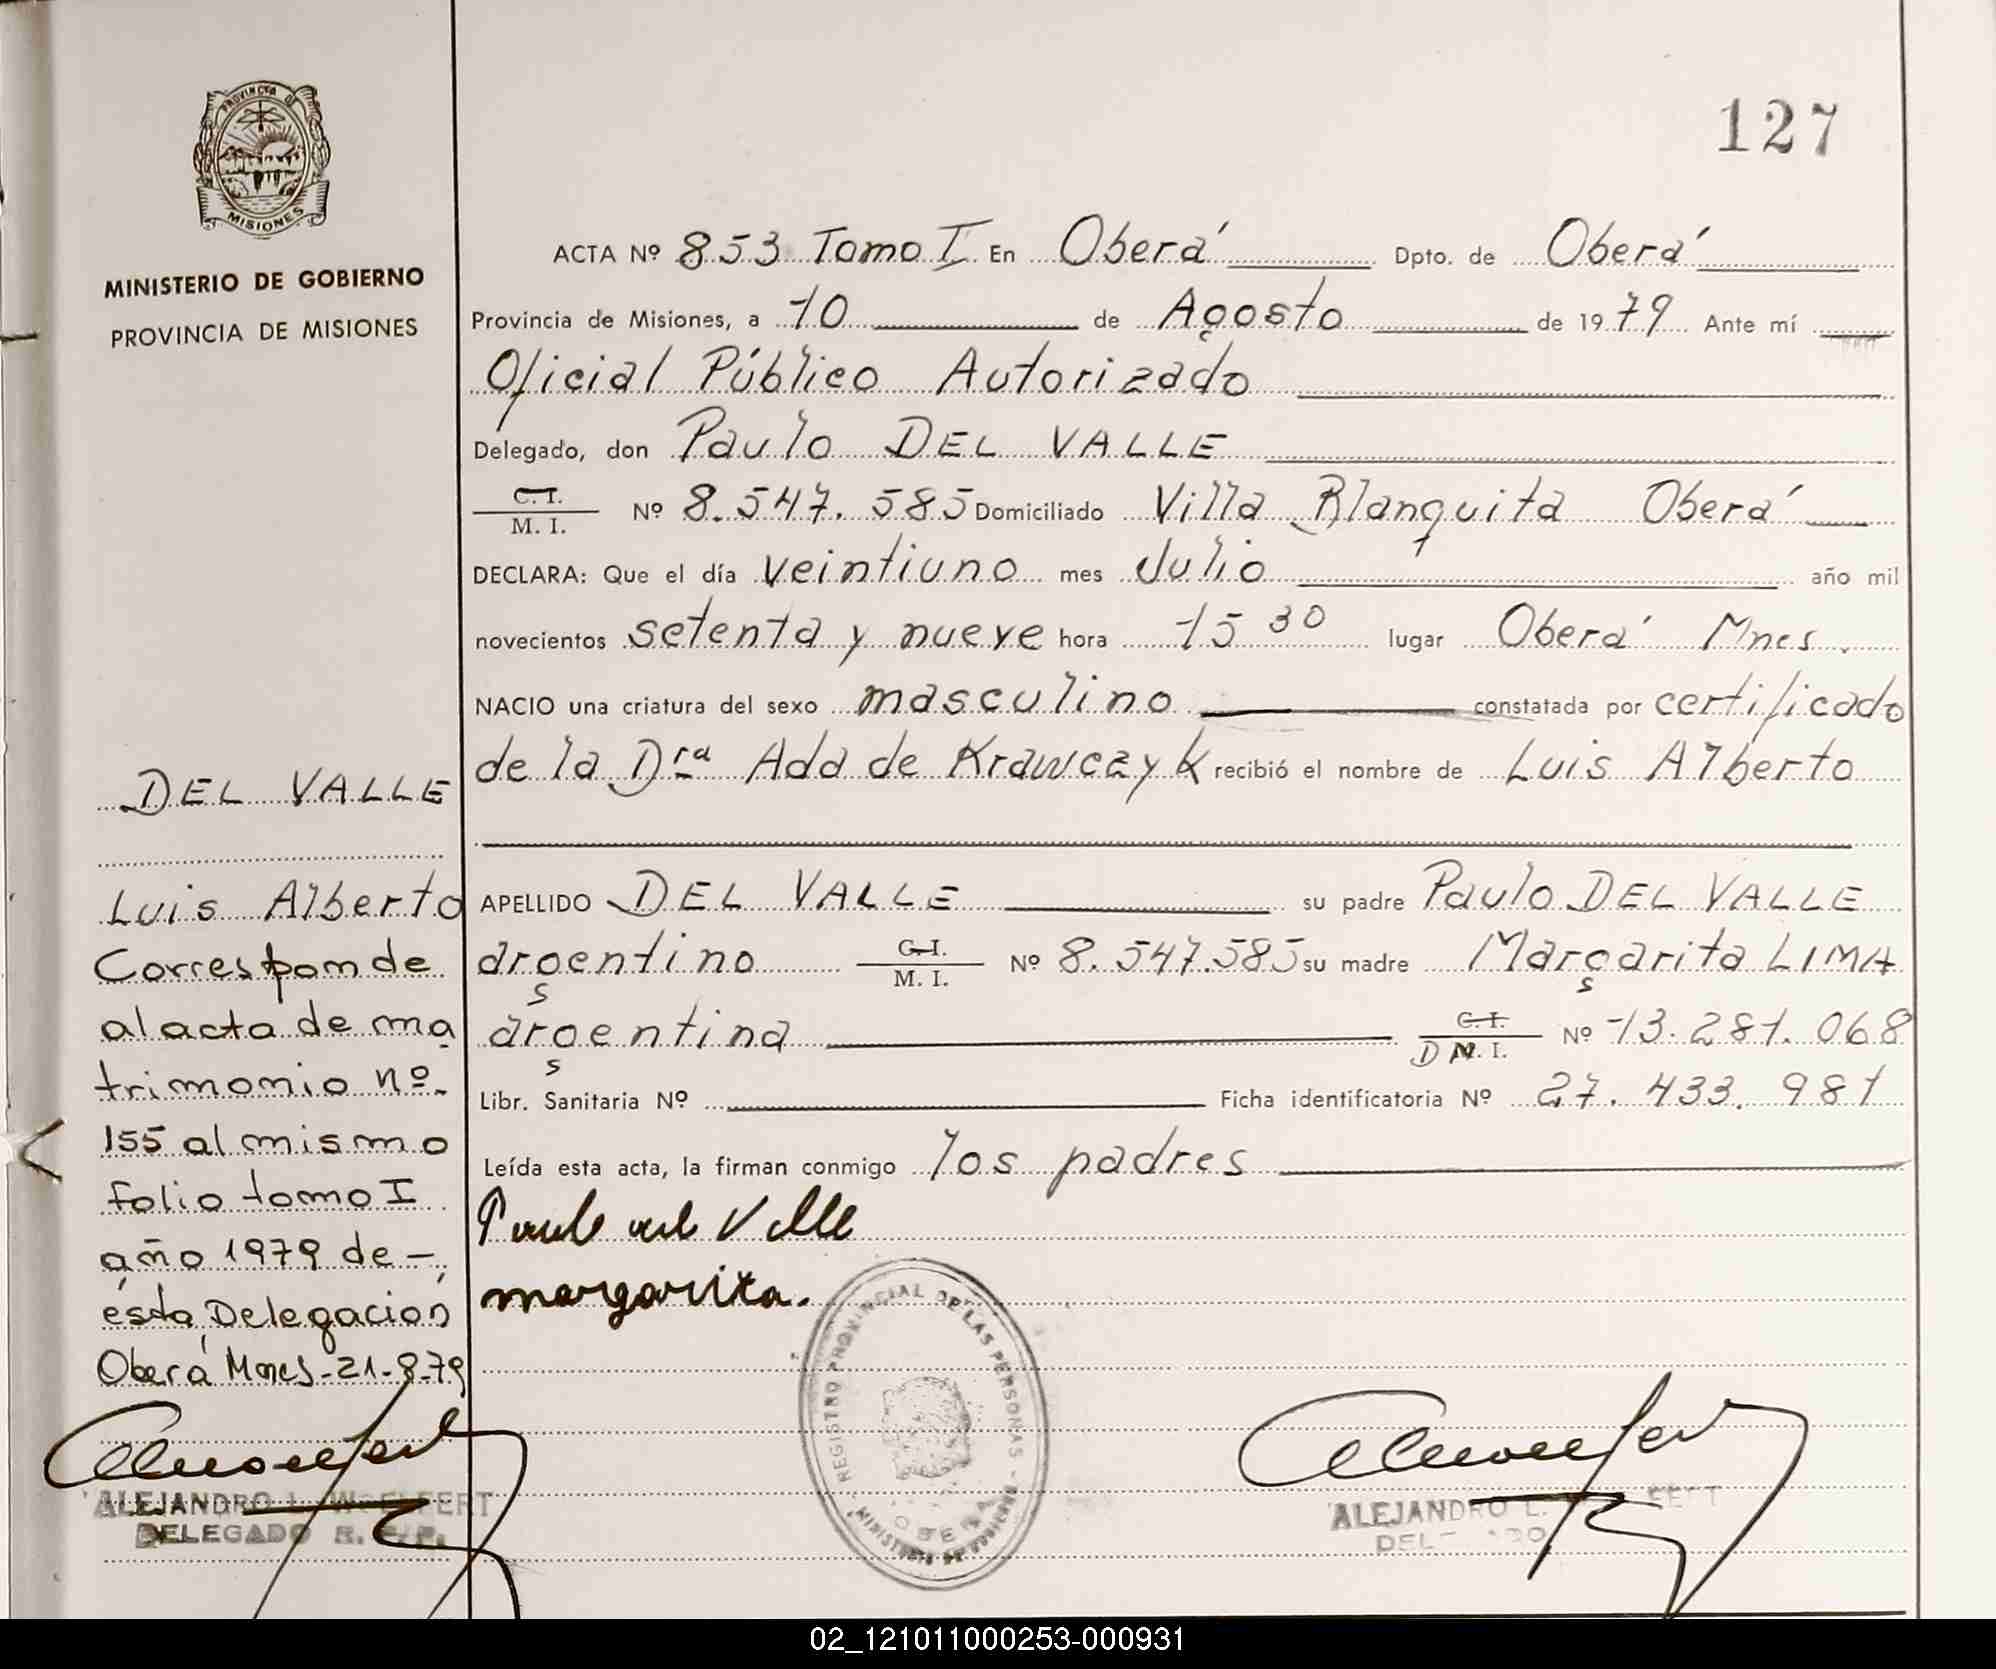 PROVINCIA DE
MISIONES
MINISTERIO DE GOBIERNO
PROVINCIA DE MISIONES
127
ACTA Nº 853 Tomo I En Oberá Dpto. de Oberá
Provincia de Misiones, a 10 de Agosto de 1979 Ante mí
Oficial Público Autorizado
Delegado, don Paulo DEL VALLE
C. I.
M. I. Nº 8.547.585 Domiciliado Villa Blanquita Oberá
DECLARA: Que el día veintiuno mes Julio año mil
novecientos setenta y nueve hora 15 30 lugar Oberá Mnes.
NACIO una criatura del sexo masculino constatada por certificado
de la Dra Ada de Krawczyk recibió el nombre de Luis Alberto
APELLIDO DEL VALLE su padre Paulo DEL VALLE
argentino C. I. M. I. Nº 8.547.585 su madre Margarita LIMA
argentina C. I. D N. I. Nº 13.281.068
Libr. Sanitaria Nº Ficha identificatoria Nº 27.433.981
Leída esta acta, la firman conmigo los padres
Paulo del Valle
margarita.
DEL VALLE
Luis Alberto
Corresponde
al acta de ma
trimonio nº-
155 al mismo
folio tomo I
año 1979 de-
ésta Delegación
Oberá Mnes-21-8-79
ALEJANDRO L. WOELFERT
DELEGADO R. P. P.
REGISTRO PROVINCIAL DE LAS PERSONAS - MINISTERIO DE GOBIERNO
OBERA
ALEJANDRO L.
02_121011000253-000931